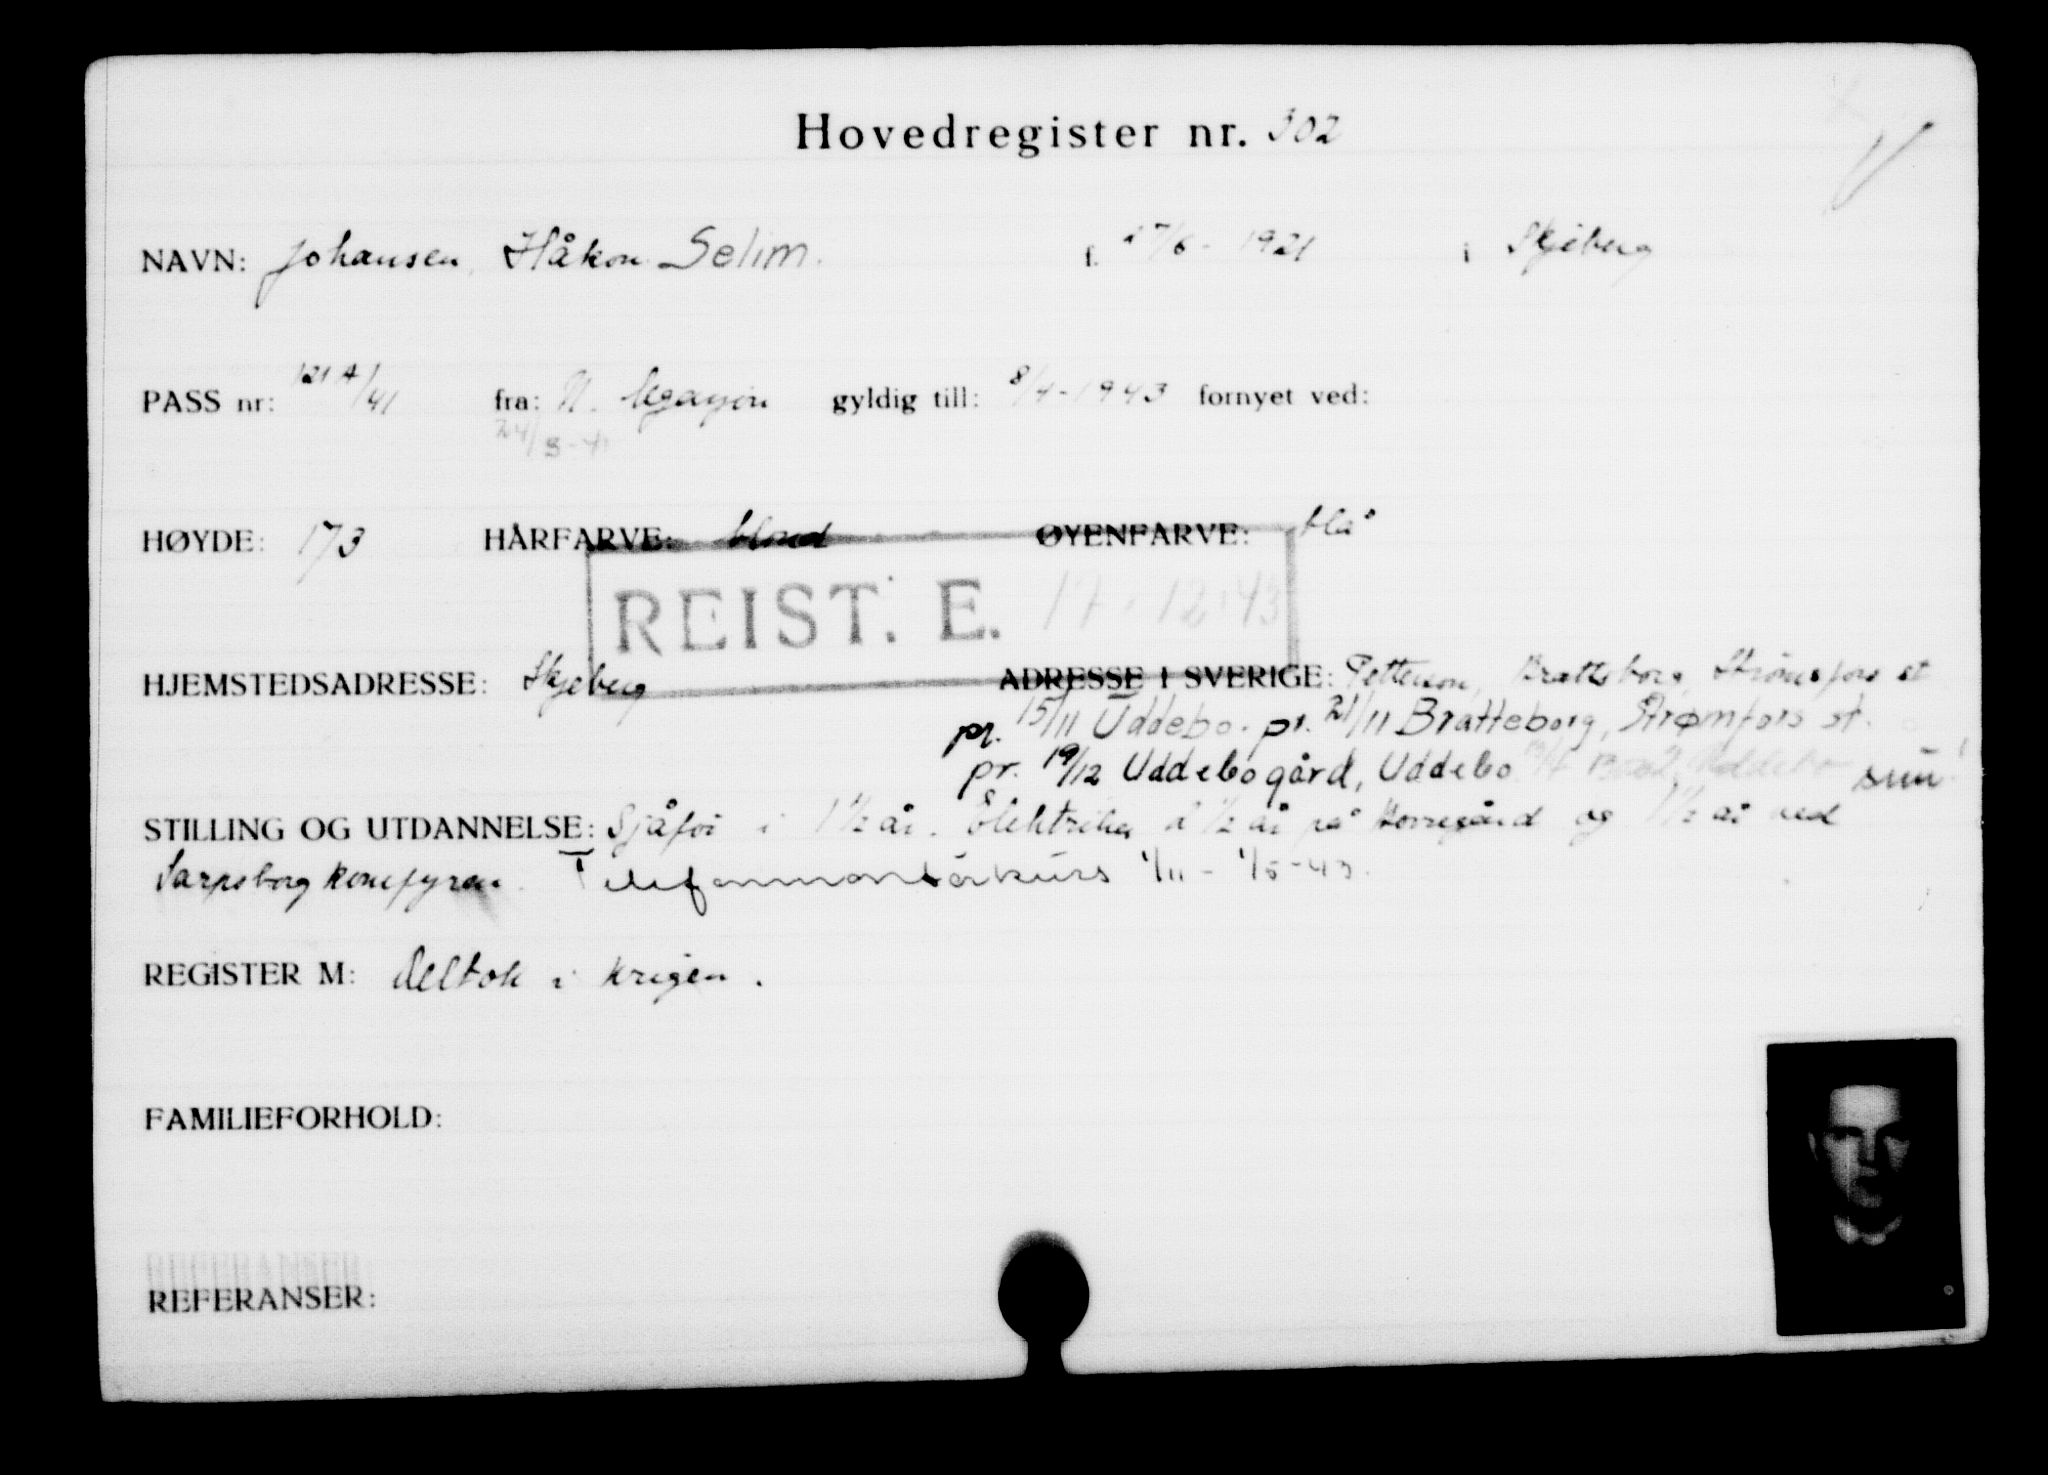 Hovedregister nr. 302
NAVN: Johansen, Håkon Selim. f. 27/6 - 1921 i Skjeberg
PASS nr: 121A/41 fra: N. legasjon gyldig till: 8/4-1943 fornyet ved:
24/3-41
HØYDE: 173 HÅRFARVE: blond ØYENFARVE: blå
REIST. E. 17.12.43
HJEMSTEDSADRESSE: Skjeberg ADRESSE I SVERIGE: Petterson, Bratteborg, Strömsfors st
pr. 15/11 Uddebo. pr. 21/11 Bratteborg, Strømfors st.
pr. 19/12 Uddebogård, Uddebo Uddebo
STILLING OG UTDANNELSE: Sjåfør i 1 1/2 år. Elektriker i 1/2 år på og 1 1/2 år ved
Sarpsborg Telefonmontørkurs 1/11 - 1/5-43.
REGISTER M: Deltok i krigen.
FAMILIEFORHOLD:
REFERANSER: